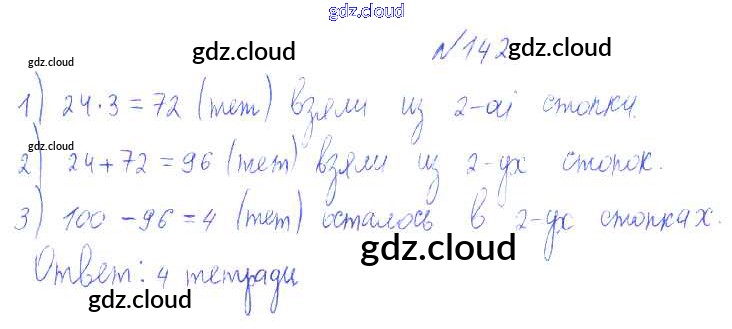 gdz.cloud
№142
gdz.cloud
gdz.cloud
gdz.cloud
1) 24·3=72 (тет) взяли из 2-ой стопки.
gdz.cloud
2) 24+72=96 (тет) взяли из 2-ух стопок.
3) 100-96=4 (тет) осталось в 2-ух стопках.
gdz.cloud
Ответ: 4 тетради
gdz.cloud
gdz.cloud